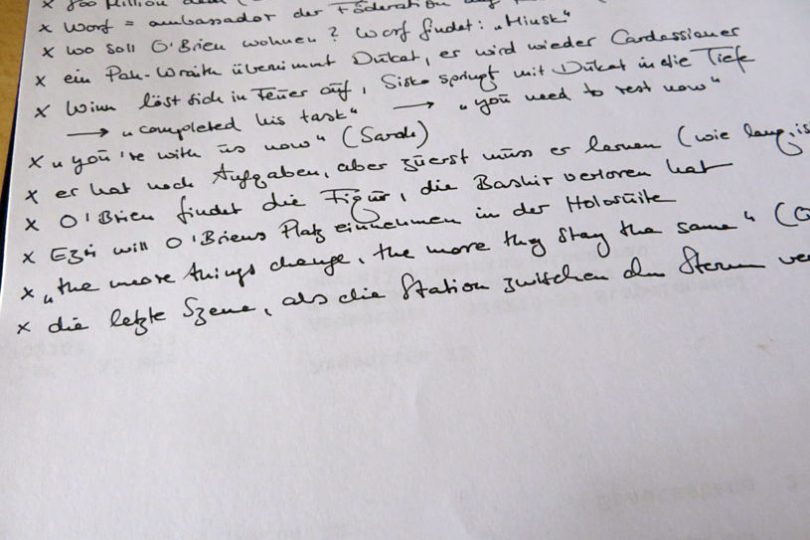 x 800 Million
x Worf = ambassador der Föderation auf
x wo soll O'Brien wohnen? Worf findet: „Minsk"
x ein Pah-Wraith übernimmt Dukat, er wird wieder Cardassianer
x Winn löst sich in Feuer auf, Sisko springt mit Dukat in die Tiefe
→ „completed his task" → „you need to rest now"
x „you're with us now" (Sarah)
x er hat noch Aufgaben, aber zuerst muss er lernen (wie lang, is
x O'Brien findet die Figur, die Bashir verloren hat
x Ezri will O'Briens Platz einnehmen in der Holosuite
x „the more things change, the more they stay the same" (
x die letzte Szene, als die Station zwischen den Sternen ve